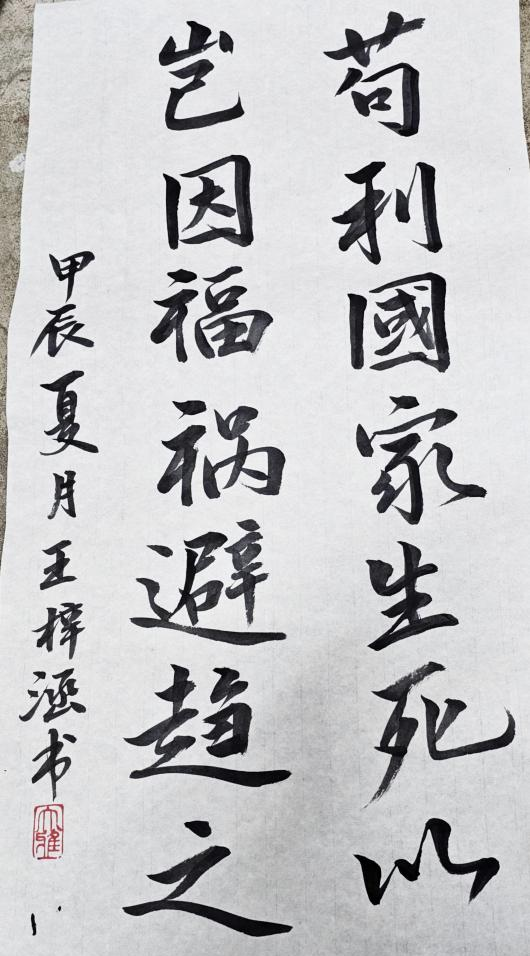 苟利國家生死以
岂因福祸避趋之
甲辰夏月王梓涵书